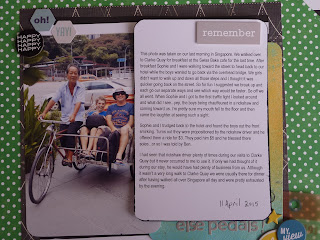 oh!
YAY!
HAPPY
HAPPY
HAPPY
HAPPY
remember
This photo was taken on our last morning in Singapore. We walked over
to Clarke Quay for breakfast at the Swiss Bake cafe for the last time. After
breakfast Sophie and I were walking toward the street to head back to our
hotel while the boys wanted to go back via the overhead bridge. We girls
didn't want to walk up and down all those steps and I thought it was
quicker going back on the street. So for fun I suggested we break up and
each go our separate ways and see which way would be faster. So off we
all went. When Sophie and I got to the first traffic light I looked around
and what did I see...yep, the boys being chauffeured in a rickshaw and
coming toward us. I'm pretty sure my mouth fell to the floor and then
came the laughter at seeing such a sight.
Sophie and I trudged back to the hotel and heard the boys out the front
Turns out they were propositioned by the rickshaw driver and he
offered them a ride for $5. They paid him $5 and he blessed them
was told by Ben.
I had seen that rickshaw driver plenty of times during our visits to Clarke
Quay but it never occurred to me to use it. If only we had thought of it
during our stay, he would have had plenty of business from us. Although
it wasn't a very long walk to Clarke Quay we were usually there for dinner
after having walked all over Singapore all day and were pretty exhausted
by the evening.
11 April 2015
else pedals!
MY